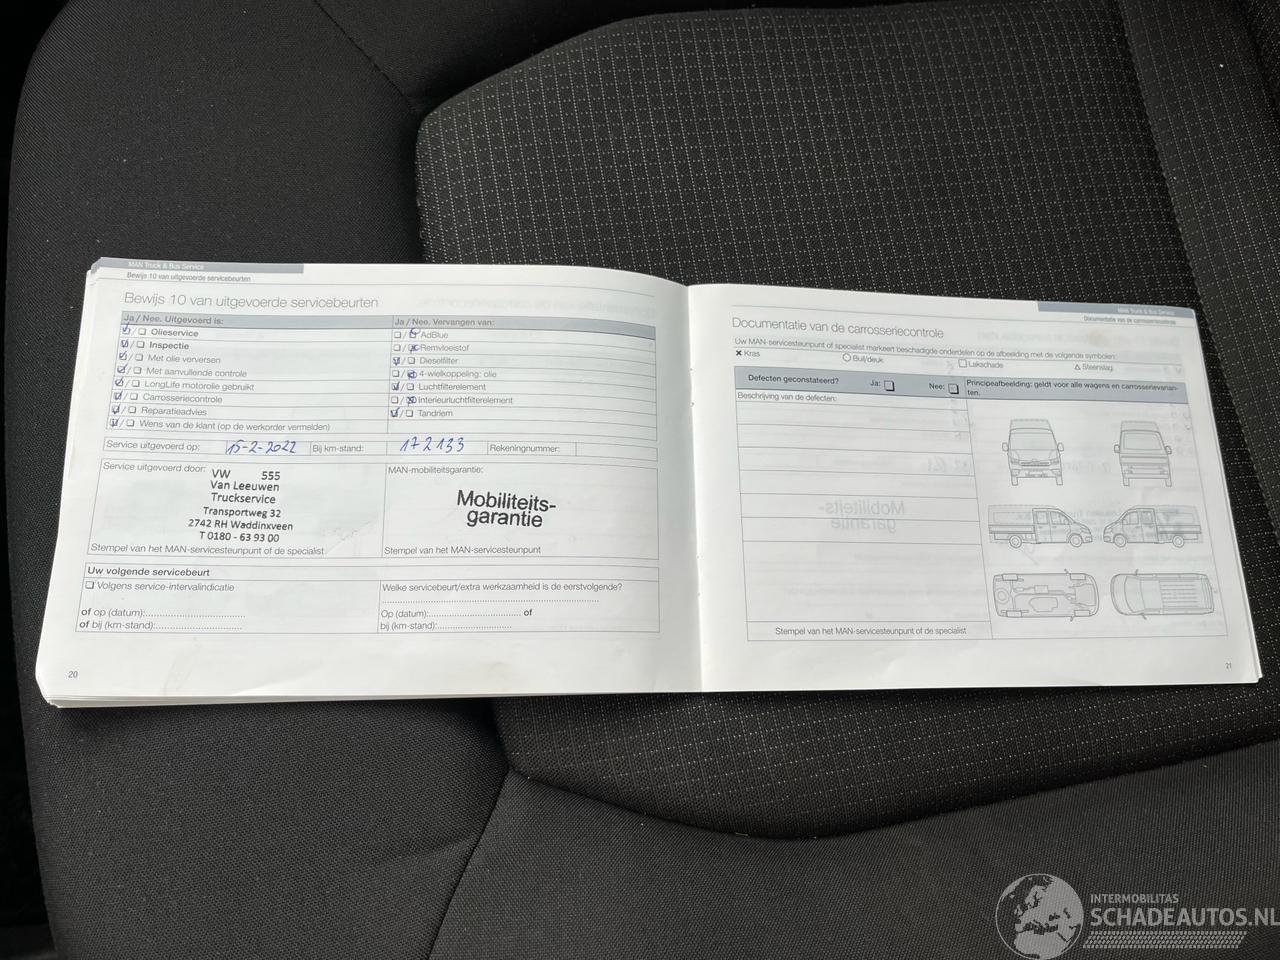 MAN Truck & Bus Service
Bewijs 10 van uitgevoerde servicebeurten
Bewijs 10 van uitgevoerde servicebeurten
Ja / Nee. Uitgevoerd is:
Olieservice
Inspectie
Met olie verversen
Met aanvullende controle
LongLife motorolie gebruikt
Carrosseriecontrole
Reparatieadvies
Wens van de klant (op de werkorder vermelden)
Ja / Nee. Vervangen van:
AdBlue
Remvloeistof
Dieselfilter
4-wielkoppeling: olie
Luchtfilterelement
Interieurluchtfilterelement
Tandriem
Service uitgevoerd op: 15-2-2022 Bij km-stand: 172133 Rekeningnummer:
Service uitgevoerd door:
VW 555
Van Leeuwen
Truckservice
Transportweg 32
2742 RH Waddinxveen
T 0180 - 63 93 00
Stempel van het MAN-servicesteunpunt of de specialist
MAN-mobiliteitsgarantie:
Mobiliteits-
garantie
Stempel van het MAN-servicesteunpunt
Uw volgende servicebeurt
Volgens service-intervalindicatie
of op (datum):
of bij (km-stand):
Welke servicebeurt/extra werkzaamheid is de eerstvolgende?
Op (datum): of
bij (km-stand):
20
MAN Truck & Bus Service
Documentatie van de carrosseriecontrole
Documentatie van de carrosseriecontrole
Uw MAN-servicesteunpunt of specialist markeert beschadigde onderdelen op de afbeelding met de volgende symbolen:
Kras Buil/deuk Lakschade Steenslag
Defecten geconstateerd? Ja: Nee:
Principeafbeelding: geldt voor alle wagens en carrosserievarian-
ten.
Beschrijving van de defecten:
Stempel van het MAN-servicesteunpunt of de specialist
21
INTERMOBILITAS
SCHADEAUTOS.NL